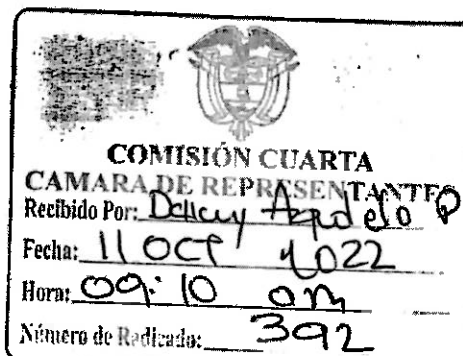 COMISIÓN CUARTA
CAMARA DE REPRESENTANTES
Recibido Por: Agudelo P
Fecha: 11 OCT 2022
Hora: 09:10 am
Número de Radicado: 392